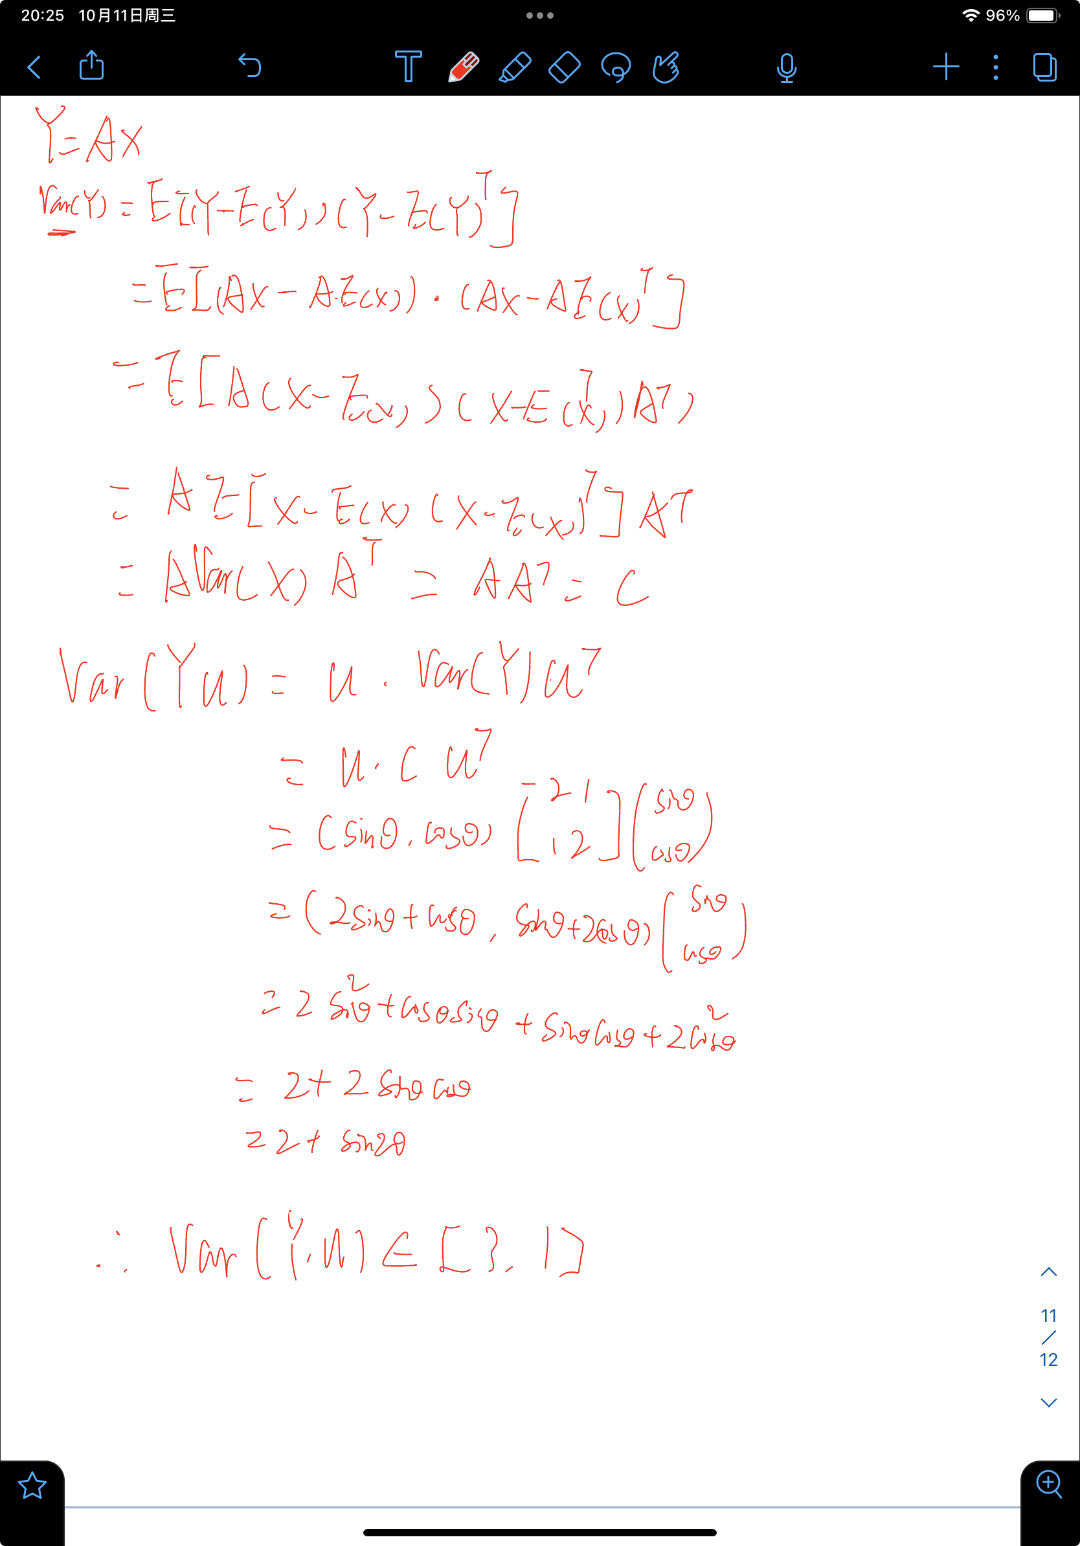 20:25 10月11日周三
96%
Y=AX
Var(Y) = E[(Y-E(Y))(Y-E(Y)^T]
=E[(AX-AE(X))·(AX-AE(X)^T]
=E[A(X-E(X))(X-E(X)^T)A^T)
= AE[X-E(X)(X-E(X))^T]A^T
= AVar(X)A^T = AA^T = C
Var(Yu) = u·Var(Y)u^T
= u·C u^T
= (sinθ, cosθ) [2 1 1 2] (sinθ cosθ)
= (2sinθ+cosθ, sinθ+2cosθ) (sinθ cosθ)
= 2sin²θ+cosθsinθ + sinθcosθ+2cos²θ
= 2+2sinθcosθ
= 2+ sin2θ
∴ Var(Y·u) ∈ [3, 1]
11
/
12